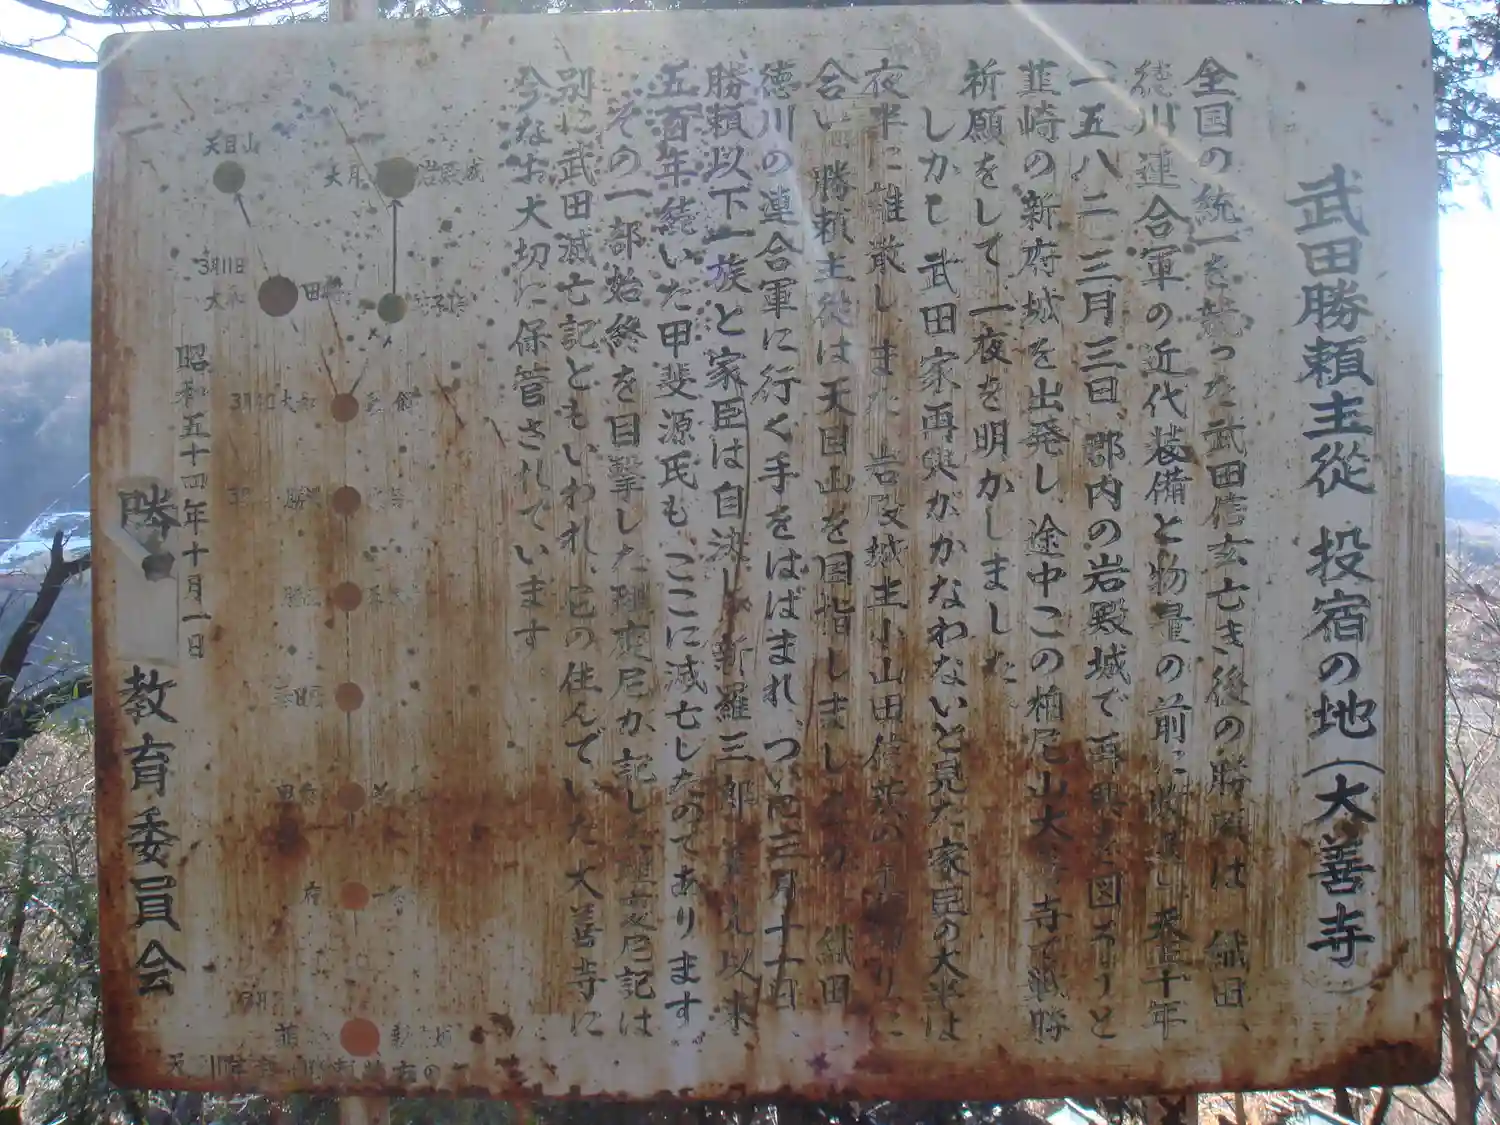 武田勝頼主從 投宿の地(大善寺)
全国の統一を競った武田信玄亡き後の勝頼は 織田、
徳川連合軍の近代装備と物量の前に 天正十年
一五八二、三月三日、郡内の岩殿城で再興を図ろうと
韮崎の新府城を出発し、途中この柏尾山大善寺で戦勝
祈願をして、一夜を明かしました
しかし 武田家再興がかなわないと見た家臣の大半は
夜半に離散しまた 岩殿城主小山田信茂の裏切りに
合い 勝頼主従は天目山を目指しましたが 織田、
徳川の連合軍に行く手をはばまれ、つい 三月十一日、
勝頼以下一族と家臣は自決し 新羅三郎 以来
五百年続いた甲斐源氏も ここに滅亡したのであります。
その一部始終を目撃した理慶尼が記した理慶尼記は
別に武田滅亡記ともいわれ、尼の住んでいた大善寺に
今なお大切に保管されています
天目山
岩殿城
3月11日
大和
田野
昭和五十四年十月一日
勝
教育委員会